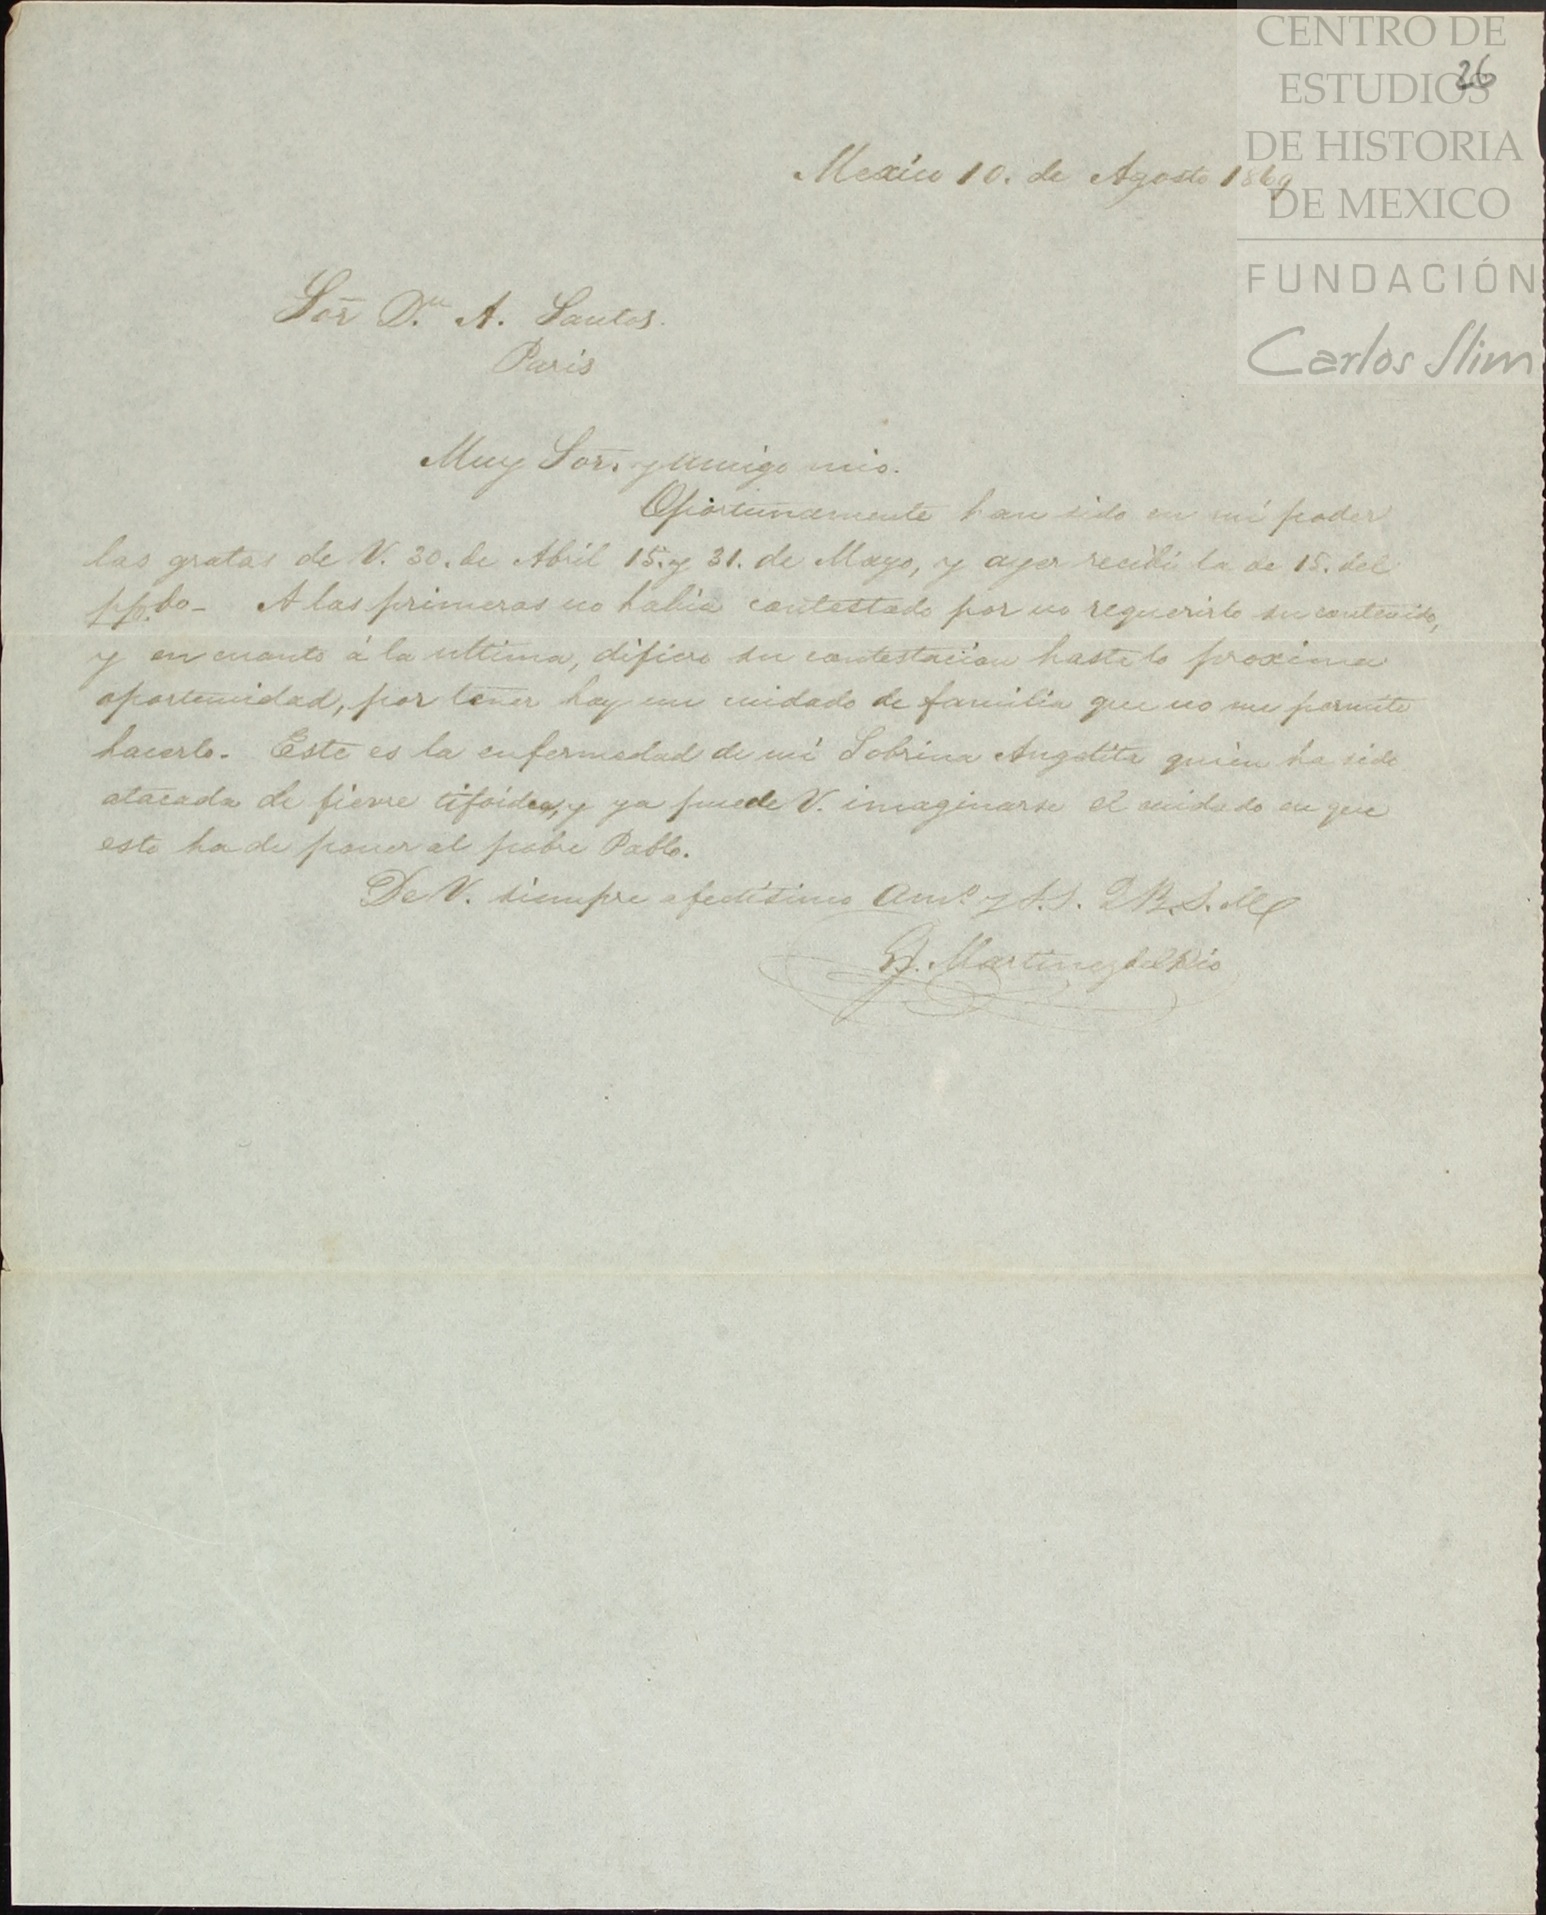 CENTRO DE
ESTUDIOS
DE HISTORIA
DE MEXICO
FUNDACIÓN
Carlos Slim
26
Mexico 10. de Agosto 1869
Sor̃ D.n A. Santos.
Paris
Muy Sor̃. y amigo mio.
Oportunamente han sido en mi poder
las gratas de V. 30. de Abril 15. y 31. de Mayo, y ayer recibi la de 15. del
pp.do_ A las primeras no habia contestado por no requerirlo su contenido,
y en cuanto á la ultima, difiero su contestacion hasta la proxima
oportunidad, por tener hoy un cuidado de familia que no me permite
hacerlo. Este es la enfermedad de mi Sobrina Angelita quien ha sido
atacada de fievre tifoidea, y ya puede V. imaginarse el cuidado en que
esto ha de poner al pobre Pablo.
De V. siempre afectísimo am.o y S.S. Q B. S. M
Martinez del Rio